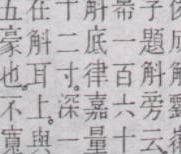 題斛旁云
冪一百六十
斛底律嘉量
十二寸深一
在斛耳上與
五豪也不寬